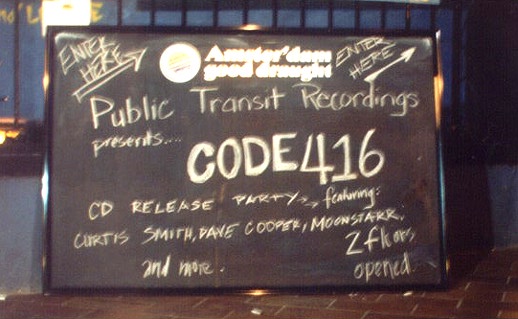 ENTER HERE
Amsterdam
good draught
ENTER HERE
Public Transit Recordings
presents....
CODE416
CD RELEASE PARTY featuring:
CURTIS SMITH, DAVE COOPER, MOONSTARR,
2 floors
and more.
opened